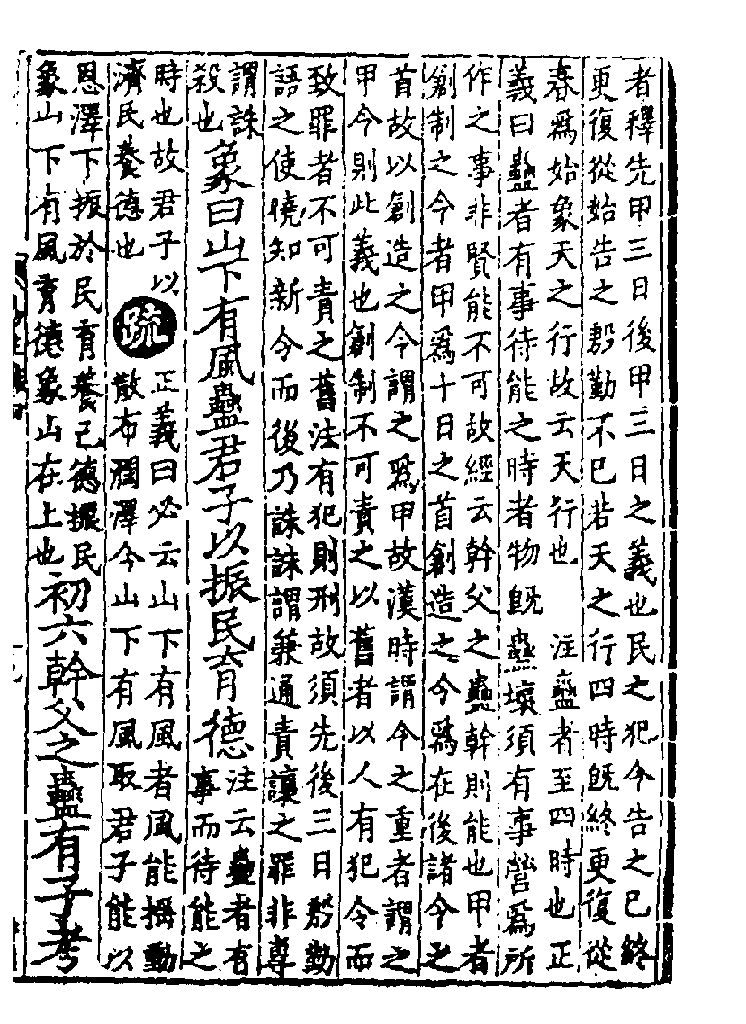 者釋先甲三日後甲三日之義也民之犯令告之已終
更復從始告之慇勤不已若天之行四時既終更復從
春爲始象天之行故云天行也 注蠱者至四時也正
義曰蠱者有事待能之時者物既蠱壞須有事營爲所
作之事非賢能不可故經云幹父之蠱幹則能也甲者
創制之令者甲爲十日之首創造之令爲在後諸令之
首故以創造之令謂之爲甲故漢時謂令之重者謂之
甲令則此義也創制不可責之以舊者以人有犯令而
致罪者不可責之舊法有犯則刑故須先後三日慇勤
語之使曉知新令而後乃誅誅謂兼通責讓之罪非專
謂誅
殺也
象曰山下有風蠱君子以振民育德
注云蠱者有
事而待能之
時也故君子以
濟民養德也
疏
正義曰必云山下有風者風能搖動
散布潤澤今山下有風取君子能以
恩澤下振於民育養己德振民
象山下有風育德象山在上也
初六幹父之蠱有子考